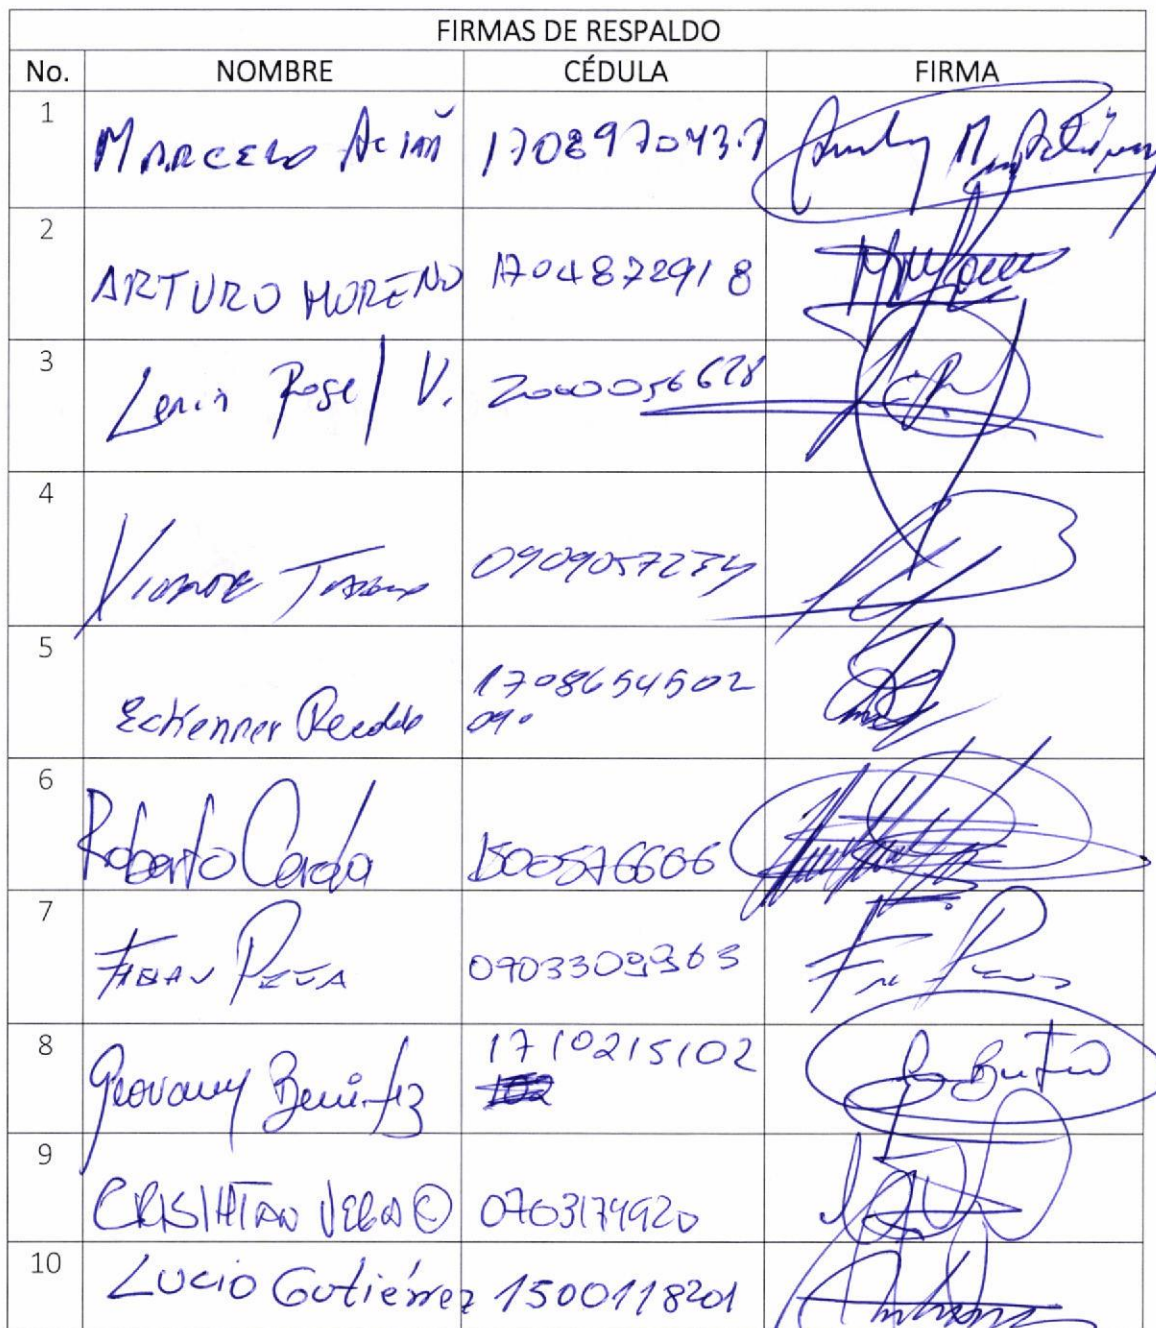 FIRMAS DE RESPALDO
No. NOMBRE CÉDULA FIRMA
1 MARCELO 1708970437
2 ARTURO MORENO 1704872918
3 Lenin Rosel V. 2000056628
4 0909057234
5 Eckenner Recalde 1708654502
09.
6 Roberto Cerda 1500576606
7 FABIAN PEÑA 0703309363
8 Geovany Benítez 1710215102
102
9 CRISTHIAN VEGA 0703174920
10 Lucio Gutiérrez 1500118201